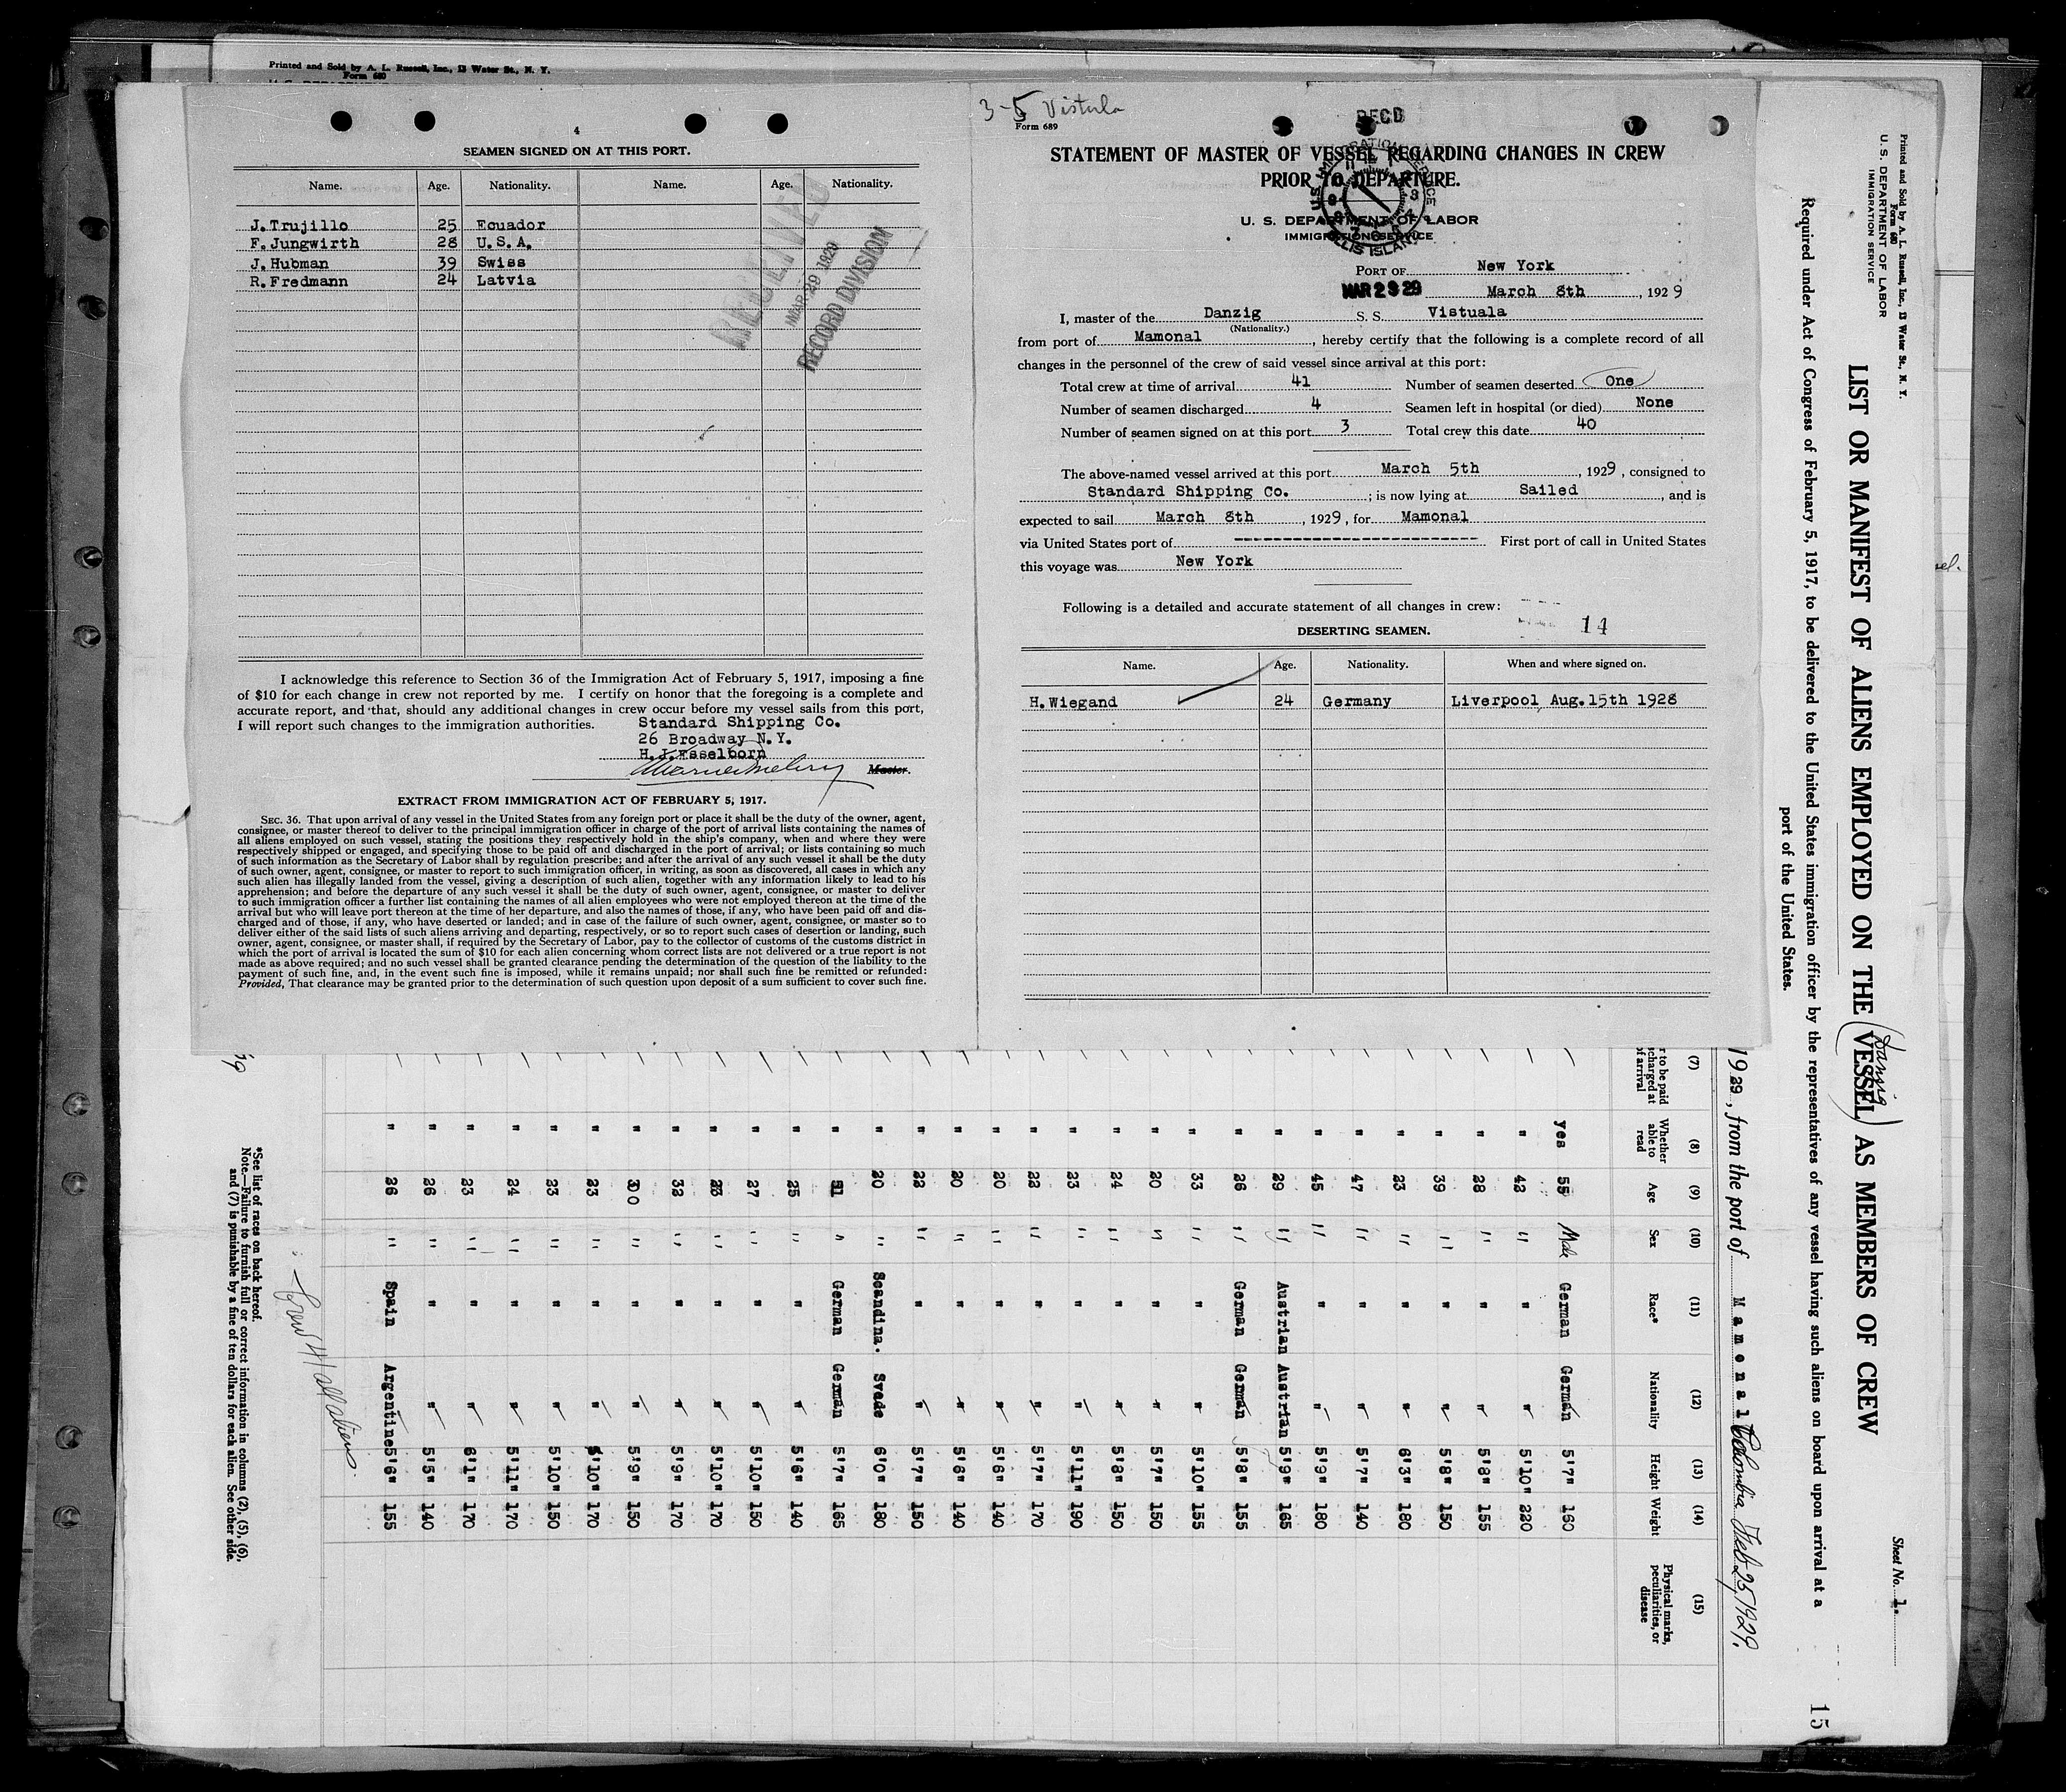 Printed and Sold by A. L. Russell, Inc., 13 Water St., N. Y.
Form 680
4
SEAMEN SIGNED ON AT THIS PORT.
Name. Age. Nationality. Name. Age. Nationality.
J. Trujillo 25 Ecuador
F. Jungwirth 28 U.S.A.
J. Hubman 39 Swiss
R. Fredmann 24 Latvia
RECEIVED
MAR 29 1929
RECORD DIVISION
I acknowledge this reference to Section 36 of the Immigration Act of February 5, 1917, imposing a fine
of $10 for each change in crew not reported by me. I certify on honor that the foregoing is a complete and
accurate report, and that, should any additional changes in crew occur before my vessel sails from this port,
I will report such changes to the immigration authorities.
Standard Shipping Co.
26 Broadway N.Y.
H.J. Esselborn
Master.
EXTRACT FROM IMMIGRATION ACT OF FEBRUARY 5, 1917.
SEC. 36. That upon arrival of any vessel in the United States from any foreign port or place it shall be the duty of the owner, agent,
consignee, or master thereof to deliver to the principal immigration officer in charge of the port of arrival lists containing the names of
all aliens employed on such vessel, stating the positions they respectively hold in the ship's company, when and where they were
respectively shipped or engaged, and specifying those to be paid off and discharged in the port of arrival; or lists containing so much
of such information as the Secretary of Labor shall by regulation prescribe; and after the arrival of any such vessel it shall be the duty
of such owner, agent, consignee, or master to report to such immigration officer, in writing, as soon as discovered, all cases in which any
such alien has illegally landed from the vessel, giving a description of such alien, together with any information likely to lead to his
apprehension; and before the departure of any such vessel it shall be the duty of such owner, agent, consignee, or master to deliver
to such immigration officer a further list containing the names of all alien employees who were not employed thereon at the time of the
arrival but who will leave port thereon at the time of her departure, and also the names of those, if any, who have been paid off and dis-
charged and of those, if any, who have deserted or landed; and in case of the failure of such owner, agent, consignee, or master so to
deliver either of the said lists of such aliens arriving and departing, respectively, or so to report such cases of desertion or landing, such
owner, agent, consignee, or master shall, if required by the Secretary of Labor, pay to the collector of customs of the customs district in
which the port of arrival is located the sum of $10 for each alien concerning whom correct lists are not delivered or a true report is not
made as above required; and no such vessel shall be granted clearance pending the determination of the question of the liability to the
payment of such fine, and, in the event such fine is imposed, while it remains unpaid; nor shall such fine be remitted or refunded:
Provided, That clearance may be granted prior to the determination of such question upon deposit of a sum sufficient to cover such fine.
3-5 Vistula
Form 689
RECD
STATEMENT OF MASTER OF VESSEL REGARDING CHANGES IN CREW
PRIOR TO DEPARTURE.
U. S. DEPARTMENT OF LABOR
IMMIGRATION SERVICE
PORT OF New York
MAR 29 29 March 8th, 1929
I, master of the Danzig S. S. Vistuala
(Nationality.)
from port of Mamonal, hereby certify that the following is a complete record of all
changes in the personnel of the crew of said vessel since arrival at this port:
Total crew at time of arrival 41 Number of seamen deserted One
Number of seamen discharged 4 Seamen left in hospital (or died) None
Number of seamen signed on at this port 3 Total crew this date 40
The above-named vessel arrived at this port March 5th, 1929, consigned to
Standard Shipping Co.; is now lying at Sailed, and is
expected to sail March 8th, 1929, for Mamonal
via United States port of ---------- First port of call in United States
this voyage was New York
Following is a detailed and accurate statement of all changes in crew:
14
DESERTING SEAMEN.
Name. Age. Nationality. When and where signed on.
H. Wiegand 24 Germany Liverpool Aug. 15th 1928
Printed and Sold by A. L. Russell, Inc., 13 Water St., N. Y.
Form 680
U. S. DEPARTMENT OF LABOR
IMMIGRATION SERVICE
Sheet No. 1.
15
LIST OR MANIFEST OF ALIENS EMPLOYED ON THE VESSEL AS MEMBERS OF CREW
Danzig
Required under Act of Congress of February 5, 1917, to be delivered to the United States immigration officer by the representatives of any vessel having such aliens on board upon arrival at a
port of the United States.
1929, from the port of Mamonal Colombia Feb 25, 1929.
(7) (8) (9) (10) (11) (12) (13) (14) (15)
r to be paid
scharged at
of arrival
Whether able to read
Age
Sex
Race*
Nationality
Height
Weight
Physical marks, peculiarities, or disease
yes 55 Male German German 5'7" 160
" 42 " " " 5'10" 220
" 28 " " " 5'8" 155
" 39 " " " 5'8" 150
" 23 " " " 6'3" 180
" 47 " " " 5'7" 140
" 45 " " " 5'9" 180
" 29 " Austrian Austrian 5'9" 165
" 26 " German German 5'8" 155
" 33 " " " 5'10" 155
" 20 " " " 5'7" 150
" 24 " " " 5'8" 150
" 23 " " " 5'11" 190
" 22 " " " 5'7" 170
" 20 " " " 5'6" 140
" 20 " " " 5'6" 140
" 22 " " " 5'7" 150
" 20 " Scandina. Svede 6'0" 180
" 51 " German German 5'7" 165
" 25 " " " 5'6" 140
" 27 " " " 5'10" 150
" 23 " " " 5'10" 170
" 32 " " " 5'9" 170
" 30 " " " 5'9" 150
" 23 " " " 5'10" 170
" 23 " " " 5'10" 150
" 24 " " " 5'11" 170
" 23 " " " 6'1" 170
" 26 " " " 5'5" 140
" 26 " Spain Argentine 5'6" 155
Crew 41 all aliens.
*See list of races on back hereof.
Note.—Failure to furnish full or correct information in columns (2), (5), (6),
and (7) is punishable by a fine of ten dollars for each alien. See other side.